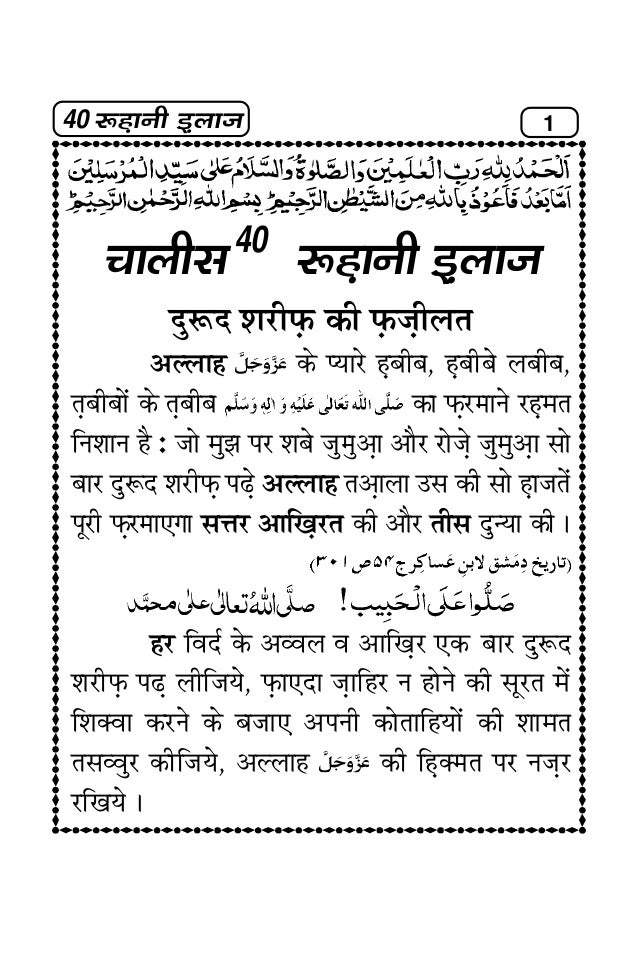 40 रूह़ानी इ़लाज
1
اَلْحَمْدُ لِلّٰهِ رَبِّ الْعٰلَمِيْنَ وَالصَّلٰوةُ وَالسَّلَامُ عَلٰى سَيِّدِ الْمُرْسَلِيْنَ
اَمَّا بَعْدُ فَاَعُوْذُ بِاللّٰهِ مِنَ الشَّيْطٰنِ الرَّجِيْمِ ؕ بِسْمِ اللّٰهِ الرَّحْمٰنِ الرَّحِيْمِ ؕ
चालीस 40 रूह़ानी इ़लाज
दुरूद शरीफ़ की फ़ज़ीलत
अल्लाह عَزَّوَجَلَّ के प्यारे ह़बीब, ह़बीबे लबीब,
त़बीबों के त़बीब صَلَّى اللّٰهُ تَعَالٰى عَلَيْهِ وَاٰلِهٖ وَسَلَّم का फ़रमाने रह़मत
निशान है : जो मुझ पर शबे जुमुआ़ और रोज़े जुमुआ़ सो
बार दुरूद शरीफ़ पढ़े अल्लाह तआ़ला उस की सो ह़ाजतें
पूरी फ़रमाएगा सत्तर आख़िरत की और तीस दुन्या की ।
(تاریخ دِمَشق لابنِ عَساکِر ج ۵۴ ص ۳۰۱)
صَلُّوا عَلَى الْحَبِيب! صلَّى اللّٰهُ تعالٰى علٰى محمَّد
हर विर्द के अव्वल व आख़िर एक बार दुरूद
शरीफ़ पढ़ लीजिये, फ़ाएदा ज़ाहिर न होने की सूरत में
शिक्वा करने के बजाए अपनी कोताहियों की शामत
तसव्वुर कीजिये, अल्लाह عَزَّوَجَلَّ की ह़िक्मत पर नज़र
रखिये ।